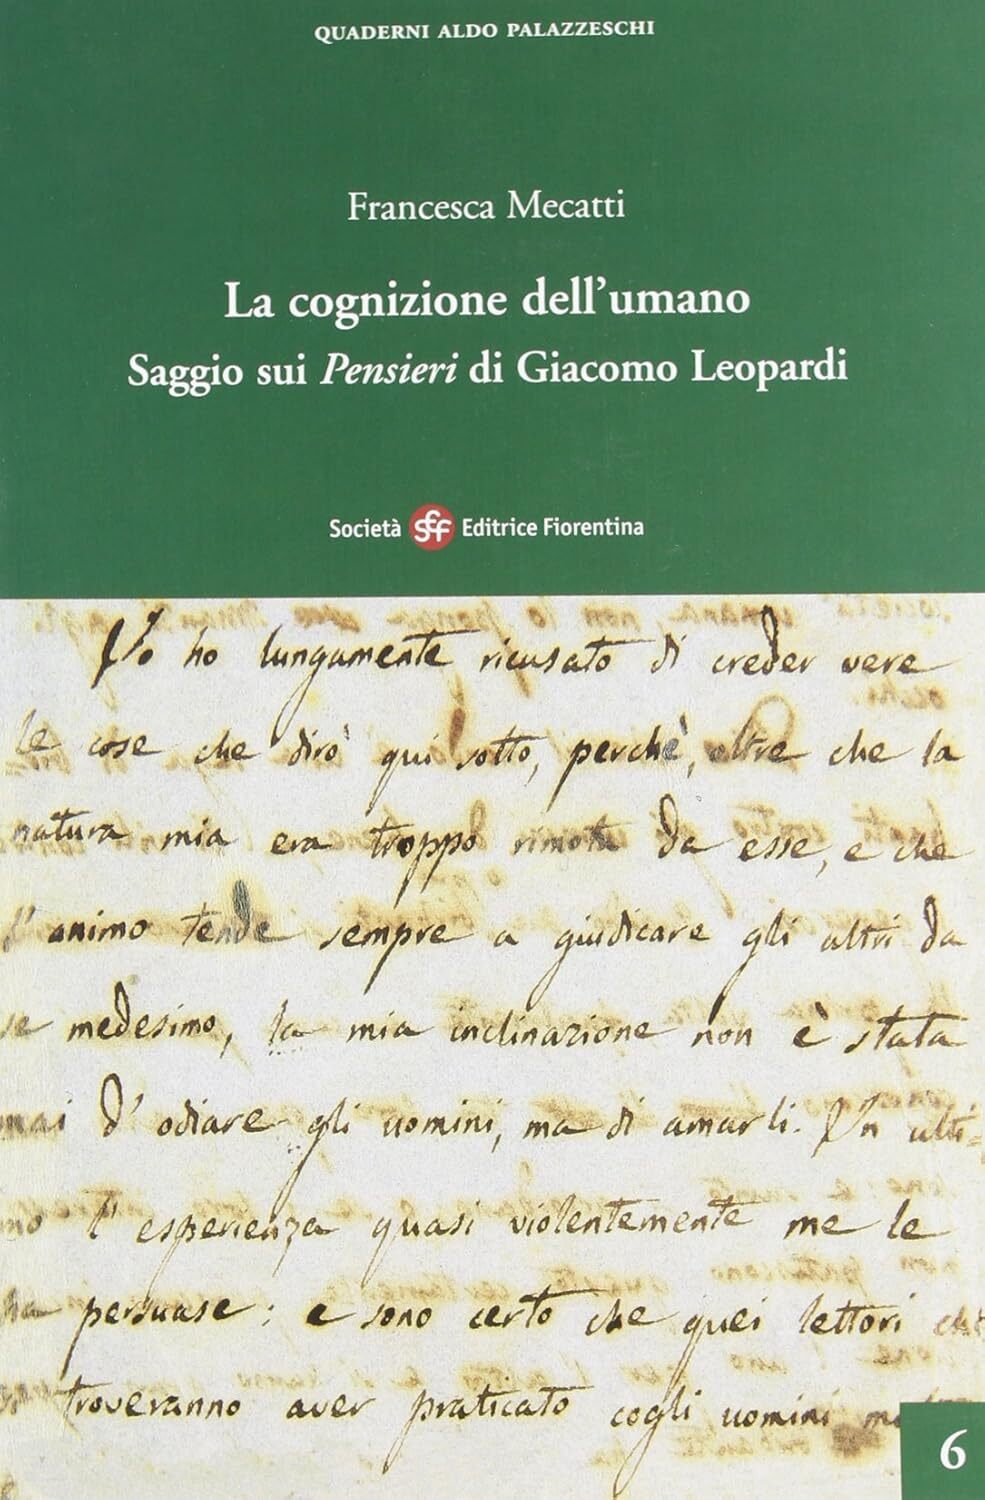 QUADERNI ALDO PALAZZESCHI
Francesca Mecatti
La cognizione dell'umano
Saggio sui Pensieri di Giacomo Leopardi
Società sef Editrice Fiorentina
Io ho lungamente ricusato di creder vere
le cose che dirò qui sotto, perchè, oltre che la
natura mia era troppo rimota da esse, e che
l'animo tende sempre a giudicare gli altri da
se medesimo, la mia inclinazione non è stata
mai d'odiare gli uomini, ma di amarli. In ulti=
mo l'esperienza quasi violentemente me le
ha persuase: e sono certo che quei lettori che
si troveranno aver praticato cogli uomini
6